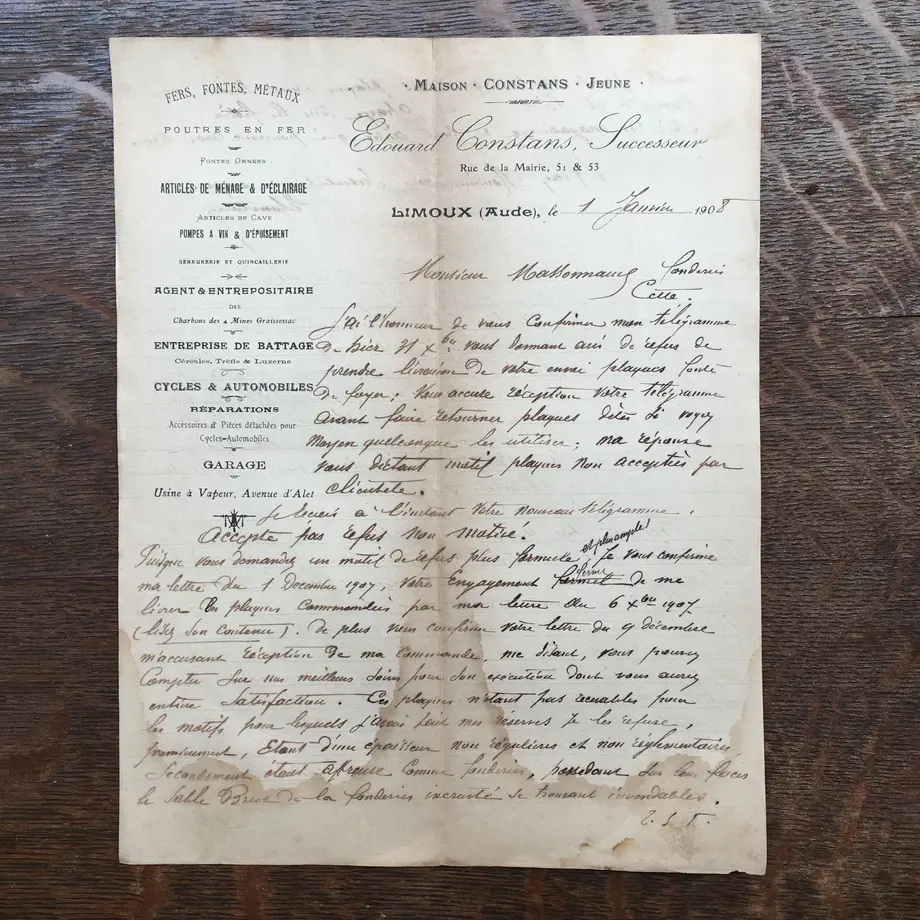 FERS, FONTES, MÉTAUX
POUTRES EN FER
FONTES ORNÉES
ARTICLES DE MÉNAGE & D'ÉCLAIRAGE
ARTICLES DE CAVE
POMPES A VIN & D'ÉPUISEMENT
SERRURERIE ET QUINCAILLERIE
AGENT & ENTREPOSITAIRE
DES
Charbons des 4 Mines Graissessac
ENTREPRISE DE BATTAGE
Céréales, Trèfle & Luzerne
CYCLES & AUTOMOBILES
RÉPARATIONS
Accessoires et Pièces détachées pour
Cycles-Automobiles
GARAGE
Usine à Vapeur, Avenue d'Alet
· MAISON · CONSTANS · JEUNE ·
Edouard Constans, Successeur
Rue de la Mairie, 51 & 53
LIMOUX (Aude), le 1 Janvier 1908
Monsieur Fonderies
Cette.
J'ai l'honneur de vous confirmer mon télégramme
de hier 31 Xbre vous donnant avis de refus de
prendre livraison de votre envoi plaques fonte
de foyer. Vous accuse réception votre télégramme
avant faire retourner plaques dites si voyez
moyen quelconque les utiliser; ma réponse
vous dictant motif plaques non acceptées par
clientèle.
Je reçois à l'instant votre nouveau télégramme.
Accepte pas refus non motivé.
Puisque vous demandez un motif de refus plus formulé, et plus ample! Je vous confirme
ma lettre du 1 Décembre 1907, votre Engagement ferme de me
livrer les plaques commandées par ma lettre du 6 Xbre 1907
(lisez son contenu). De plus vous confirme votre lettre du 9 décembre
m'accusant réception de ma commande, me disant, vous pouvez
compter sur nos meilleurs soins pour son exécution dont vous aurez
entière satisfaction. Ces plaques n'étant pas recevables pour
les motifs pour lesquels j'avais fait mes réserves je les refuse,
premièrement, Etant d'une épaisseur non régulières et non réglementaires
Secondement étant affreuse comme fonderies, possédant sur leur faces
le sable Brut de la fonderies incrusté se trouvant invendables.
T. S. V. P.